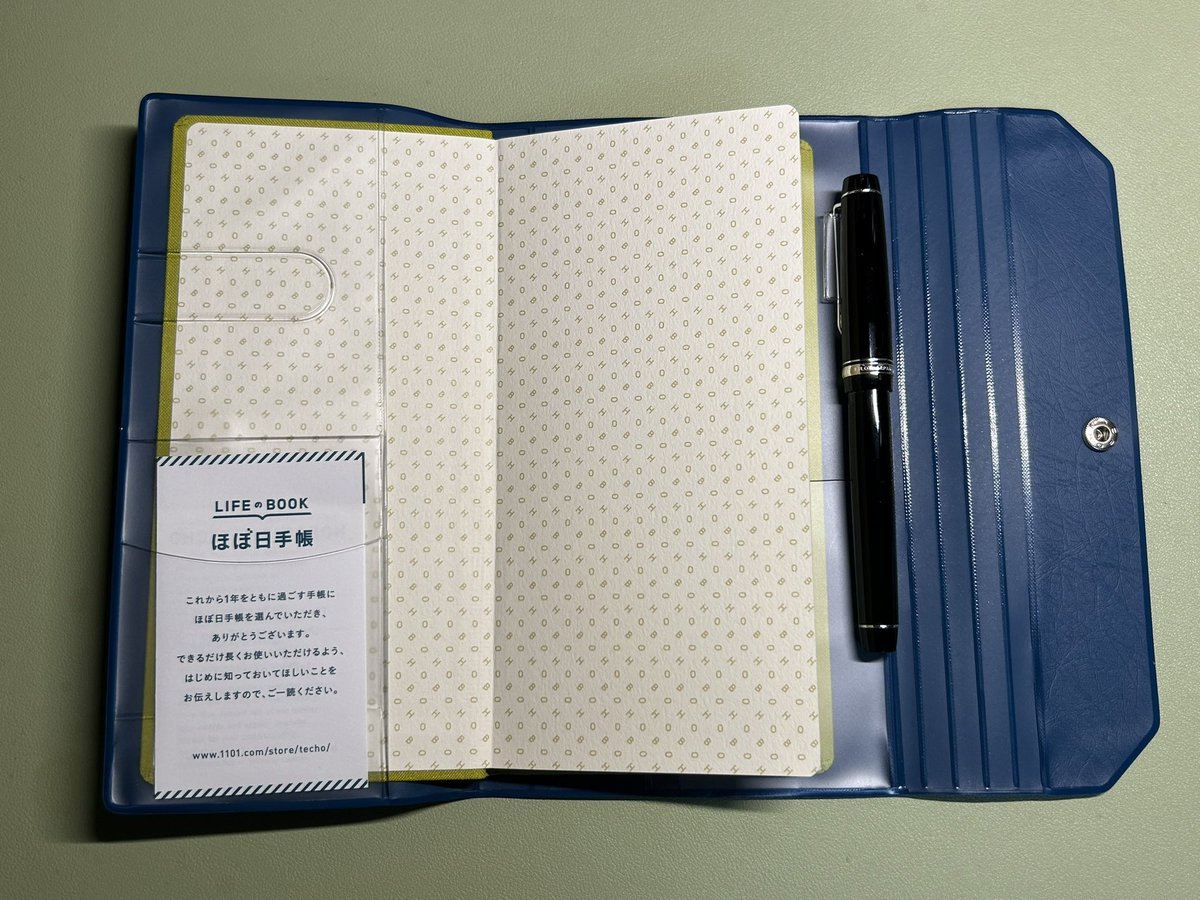 LIFEのBOOK
ほぼ日手帳
これから1年をともに過ごす手帳に
ほぼ日手帳を選んでいただき、
ありがとうございます。
できるだけ長くお使いいただけるよう、
はじめに知っておいてほしいことを
お伝えしますので、ご一読ください。
www.1101.com/store/techo/